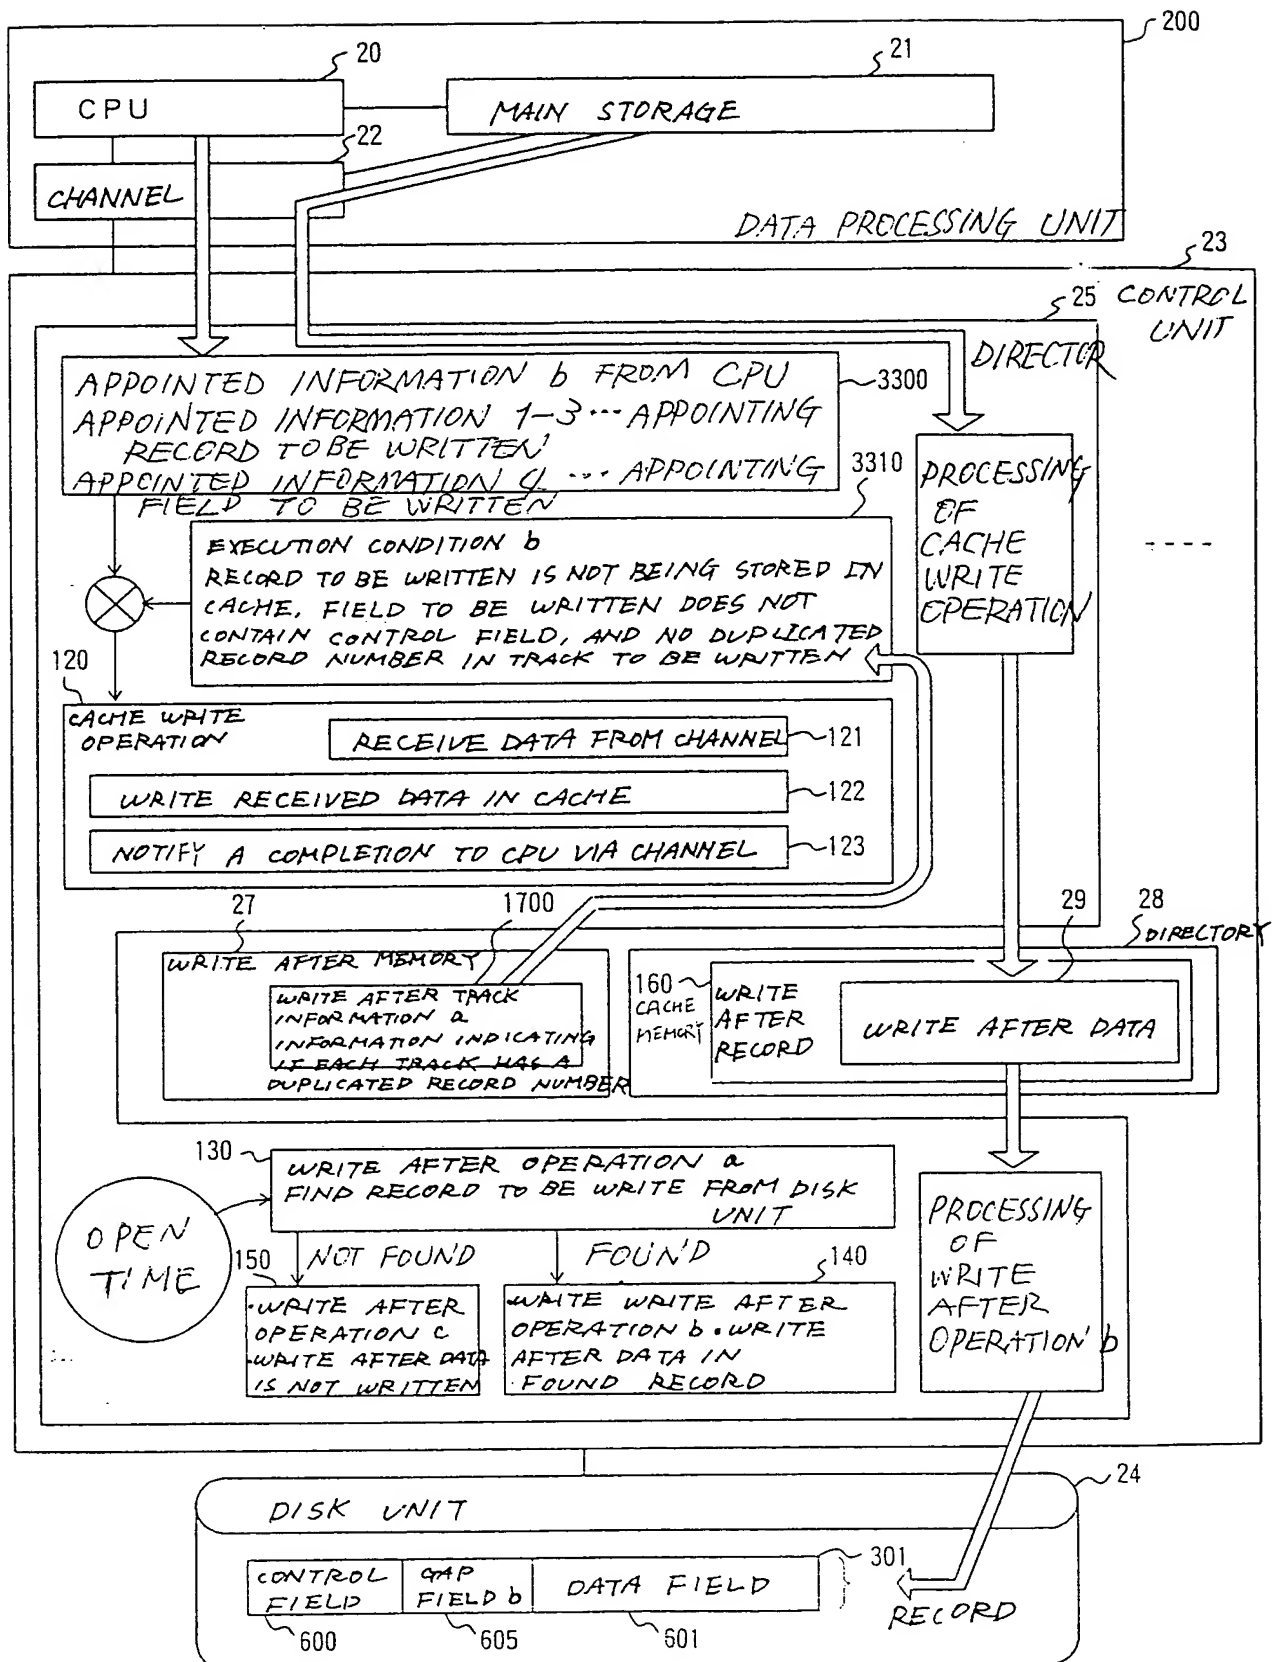 200
20
21
CPU
MAIN STORAGE
22
CHANNEL
DATA PROCESSING UNIT
23
25
CONTROL
UNIT
DIRECTOR
APPOINTED INFORMATION b FROM CPU
APPOINTED INFORMATION 1-3 ... APPOINTING
RECORD TO BE WRITTEN
APPOINTED INFORMATION 4 ... APPOINTING
FIELD TO BE WRITTEN
3300
3310
EXECUTION CONDITION b
RECORD TO BE WRITTEN IS NOT BEING STORED IN
CACHE, FIELD TO BE WRITTEN DOES NOT
CONTAIN CONTROL FIELD, AND NO DUPLICATED
RECORD NUMBER IN TRACK TO BE WRITTEN
PROCESSING
OF
CACHE
WRITE
OPERATION
120
CACHE WRITE
OPERATION
RECEIVE DATA FROM CHANNEL
121
WRITE RECEIVED DATA IN CACHE
122
NOTIFY A COMPLETION TO CPU VIA CHANNEL
123
27
1700
29
28
DIRECTORY
WRITE AFTER MEMORY
WRITE AFTER TRACK
INFORMATION a
INFORMATION INDICATING
IF EACH TRACK HAS A
DUPLICATED RECORD NUMBER
160
CACHE
MEMORY
WRITE
AFTER
RECORD
WRITE AFTER DATA
130
WRITE AFTER OPERATION a
FIND RECORD TO BE WRITE FROM DISK
UNIT
OPEN
TIME
150
NOT FOUND
FOUND
140
·WRITE AFTER
OPERATION c
·WRITE AFTER DATA
IS NOT WRITTEN
·WRITE WRITE AFTER
OPERATION b·WRITE
AFTER DATA IN
·FOUND RECORD
PROCESSING
OF
WRITE
AFTER
OPERATION b
24
DISK UNIT
301
CONTROL
FIELD
GAP
FIELD b
DATA FIELD
RECORD
600
605
601